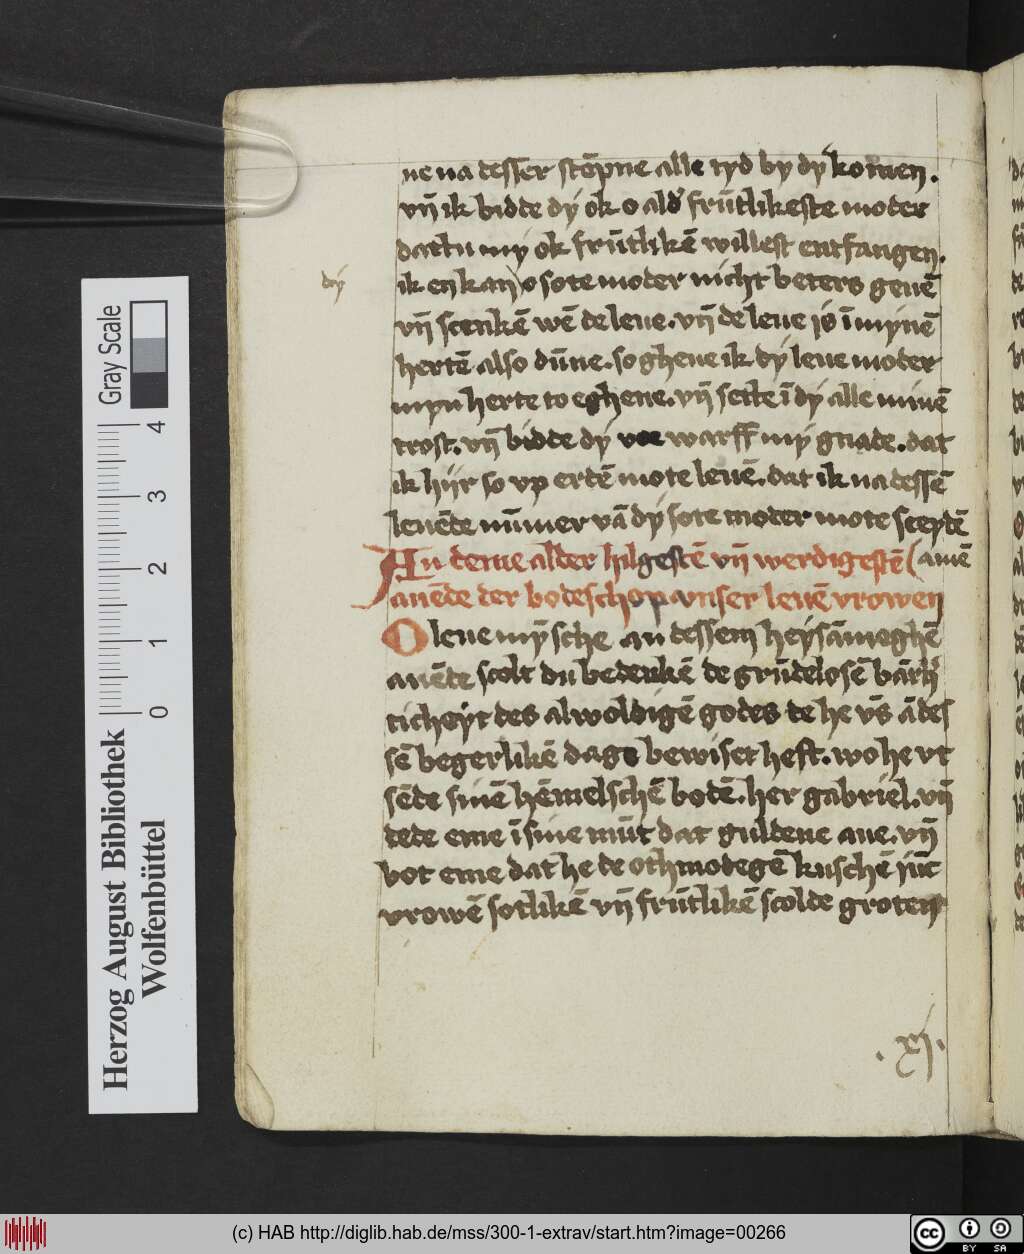 ne na desser stēpne alle tyd by dy komen.
vn̄ ik bidde dy ok o ald' frūtlikeste moder
dattu my ok frūtlikē willest entfangen.
dy
ik en kan o sote moder nicht beters geuē
vn̄ scenkē wē de leue. vn̄ de leue is ī mynē
hertē also dūne. so gheue ik dy leue moder
myn herte to eghene. vn̄ sette ī dy alle minē
trost. vn̄ bidde dy vor warff my gnade. dat
ik hyr so vp ertē mote leuē. dat ik na dessē
leuēde nūmer vā dy sote moder mote sceydē
An deme alder hilgestē vn̄ werdigestē (amē
auēde der bodeschop vnser leuē vrowen
O leue mȳsche an dessem heysāmeghē
auēde scolt du bedenkē de grūdelosē bārh'
ticheyt des alwoldigē godes de he vs ā des
sē begerlikē dage bewiset heft. wo he vt
sēde sinē hēmelschē bodē. her gabriel. vn̄
dede eme ī sine mūt dat guldene aue. vn̄
bot eme dat he de othmodegē kuschē jūc
vrowē sotlikē vn̄ frūtlikē scolde groten
.xj.
Gray Scale
4
3
2
1
0
Herzog August Bibliothek
Wolfenbüttel
(c) HAB http://diglib.hab.de/mss/300-1-extrav/start.htm?image=00266
cc BY SA